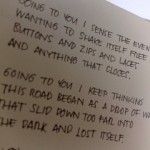 GOING TO YOU I SENSE THE EVEN
WANTING TO SHAKE ITSELF FREE
BUTTONS AND ZIPS AND LACES
AND ANYTHING THAT CLOSES.
GOING TO YOU I KEEP THINKING
THIS ROAD BEGAN AS A DROP OF WAT
THAT SLID DOWN TOO FAR INTO
THE DARK AND LOST ITSELF.